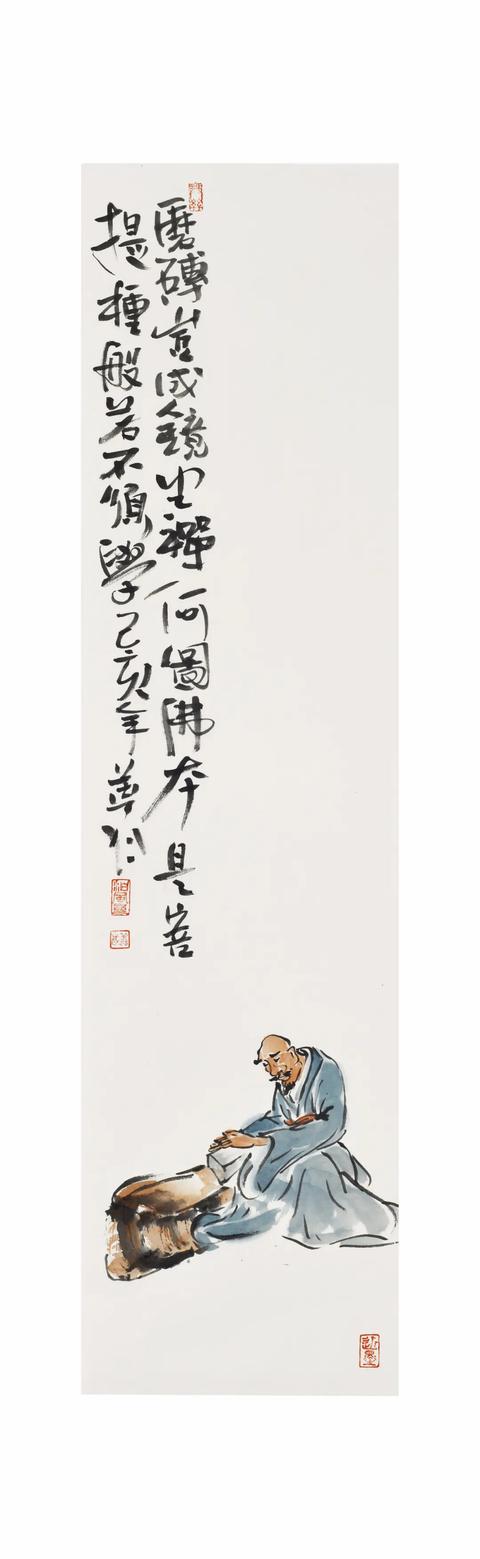 磨磚豈成鏡坐禪何圖佛本是菩
提種般若不須學己亥年